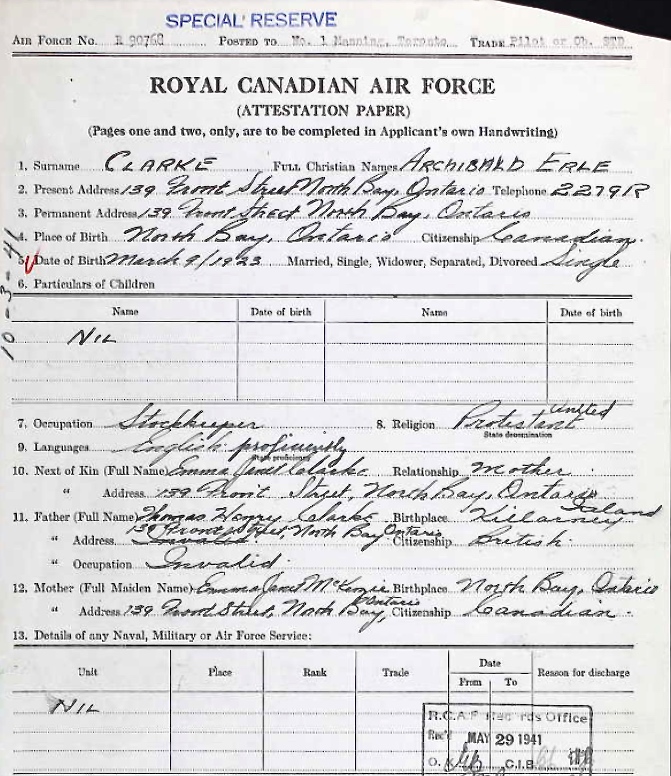 SPECIAL RESERVE
AIR FORCE NO. R 90768 POSTED TO No. 1 Manning, Toronto. TRADE Pilot or Ob. STD
ROYAL CANADIAN AIR FORCE
(ATTESTATION PAPER)
(Pages one and two, only, are to be completed in Applicant's own Handwriting)
1. Surname CLARKE FULL Christian Names ARCHIBALD ERLE
2. Present Address 139 Front Street North Bay, Ontario Telephone 2279R
3. Permanent Address 139 Front Street North Bay, Ontario
4. Place of Birth North Bay, Ontario Citizenship Canadian.
5. Date of Birth March 9/1923 Married, Single, Widower, Separated, Divorced Single
6. Particulars of Children
10-3-41
Name Date of birth Name Date of birth
NIL
7. Occupation Stockkeeper 8. Religion Protestant United
State denomination
9. Languages English proficiently
State proficiency
10. Next of Kin (Full Name) Emma Janet Clarke Relationship Mother
" Address 139 Front Street, North Bay, Ontario
11. Father (Full Name) Thomas Henry Clarke Birthplace Killarney
" Address Front Street, North Bay Ontario Citizenship British
" Occupation Invalid
12. Mother (Full Maiden Name) Emma Janet McKenzie Birthplace North Bay, Ontario
" Address 139 Front Street, North Bay, Ontario Citizenship Canadian.
13. Details of any Naval, Military or Air Force Service:
Unit Place Rank Trade Date Reason for discharge
From To
NIL
R.C.A.F. Records Office
Rec'd MAY 29 1941
O. K. C.I.B.